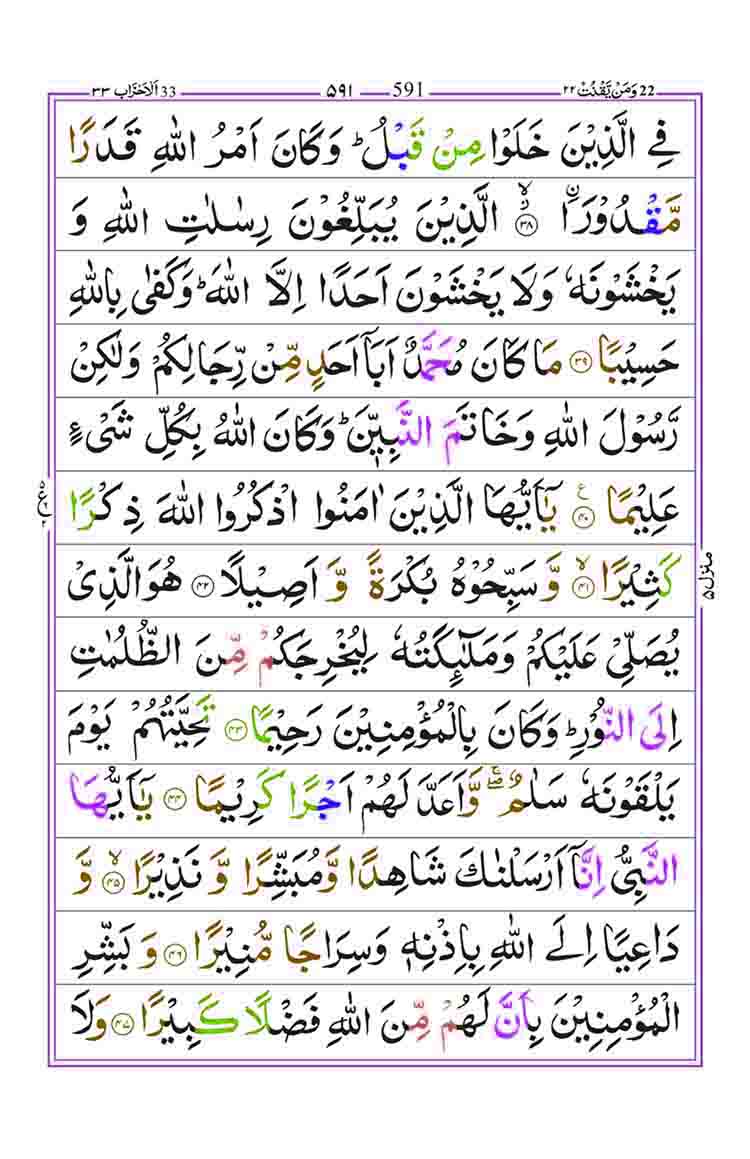 22 وَمَنْ يَّقْنُتْ ٢٢ 591 ۵۹۱ 33 اَلْاَحْزَاب ٣٣
فِی الَّذِیْنَ خَلَوْا مِنْ قَبْلُ ؕ وَكَانَ اَمْرُ اللّٰهِ قَدَرًا
مَّقْدُوْرَا ۨ ۙ ﴿۳۸﴾ الَّذِیْنَ یُبَلِّغُوْنَ رِسٰلٰتِ اللّٰهِ وَ
یَخْشَوْنَهٗ وَلَا یَخْشَوْنَ اَحَدًا اِلَّا اللّٰهَ ؕ وَكَفٰی بِاللّٰهِ
حَسِیْبًا ﴿۳۹﴾ مَا كَانَ مُحَمَّدٌ اَبَاۤ اَحَدٍ مِّنْ رِّجَالِكُمْ وَلٰكِنْ
رَّسُوْلَ اللّٰهِ وَخَاتَمَ النَّبِیّٖنَ ؕ وَكَانَ اللّٰهُ بِكُلِّ شَیْءٍ
عَلِیْمًا ﴿۴۰﴾ ع یٰۤاَیُّهَا الَّذِیْنَ اٰمَنُوا اذْكُرُوا اللّٰهَ ذِكْرًا
كَثِیْرًا ۙ ﴿۴۱﴾ وَّ سَبِّحُوْهُ بُكْرَةً وَّ اَصِیْلًا ﴿۴۲﴾ هُوَ الَّذِیْ
یُصَلِّیْ عَلَیْكُمْ وَمَلٰٓىِٕكَتُهٗ لِیُخْرِجَكُمْ مِّنَ الظُّلُمٰتِ
اِلَی النُّوْرِ ؕ وَكَانَ بِالْمُؤْمِنِیْنَ رَحِیْمًا ﴿۴۳﴾ تَحِیَّتُهُمْ یَوْمَ
یَلْقَوْنَهٗ سَلٰمٌ ۖۚ وَّاَعَدَّ لَهُمْ اَجْرًا كَرِیْمًا ﴿۴۴﴾ یٰۤاَیُّهَا
النَّبِیُّ اِنَّاۤ اَرْسَلْنٰكَ شَاهِدًا وَّمُبَشِّرًا وَّ نَذِیْرًا ۙ ﴿۴۵﴾ وَّ
دَاعِیًا اِلَی اللّٰهِ بِاِذْنِهٖ وَسِرَاجًا مُّنِیْرًا ﴿۴۶﴾ وَ بَشِّرِ
الْمُؤْمِنِیْنَ بِاَنَّ لَهُمْ مِّنَ اللّٰهِ فَضْلًا كَبِیْرًا ﴿۴۷﴾ وَلَا
منزل ۵